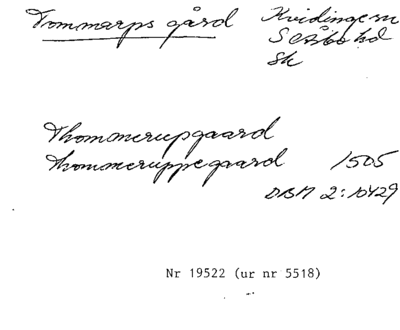 Tommarps gård Kvidinge sn
S Åsbo hd
Sk
Thommerupgaard
Thommeruppegaard 1505
DBM 2:10429
Nr 19522 (ur nr 5518)